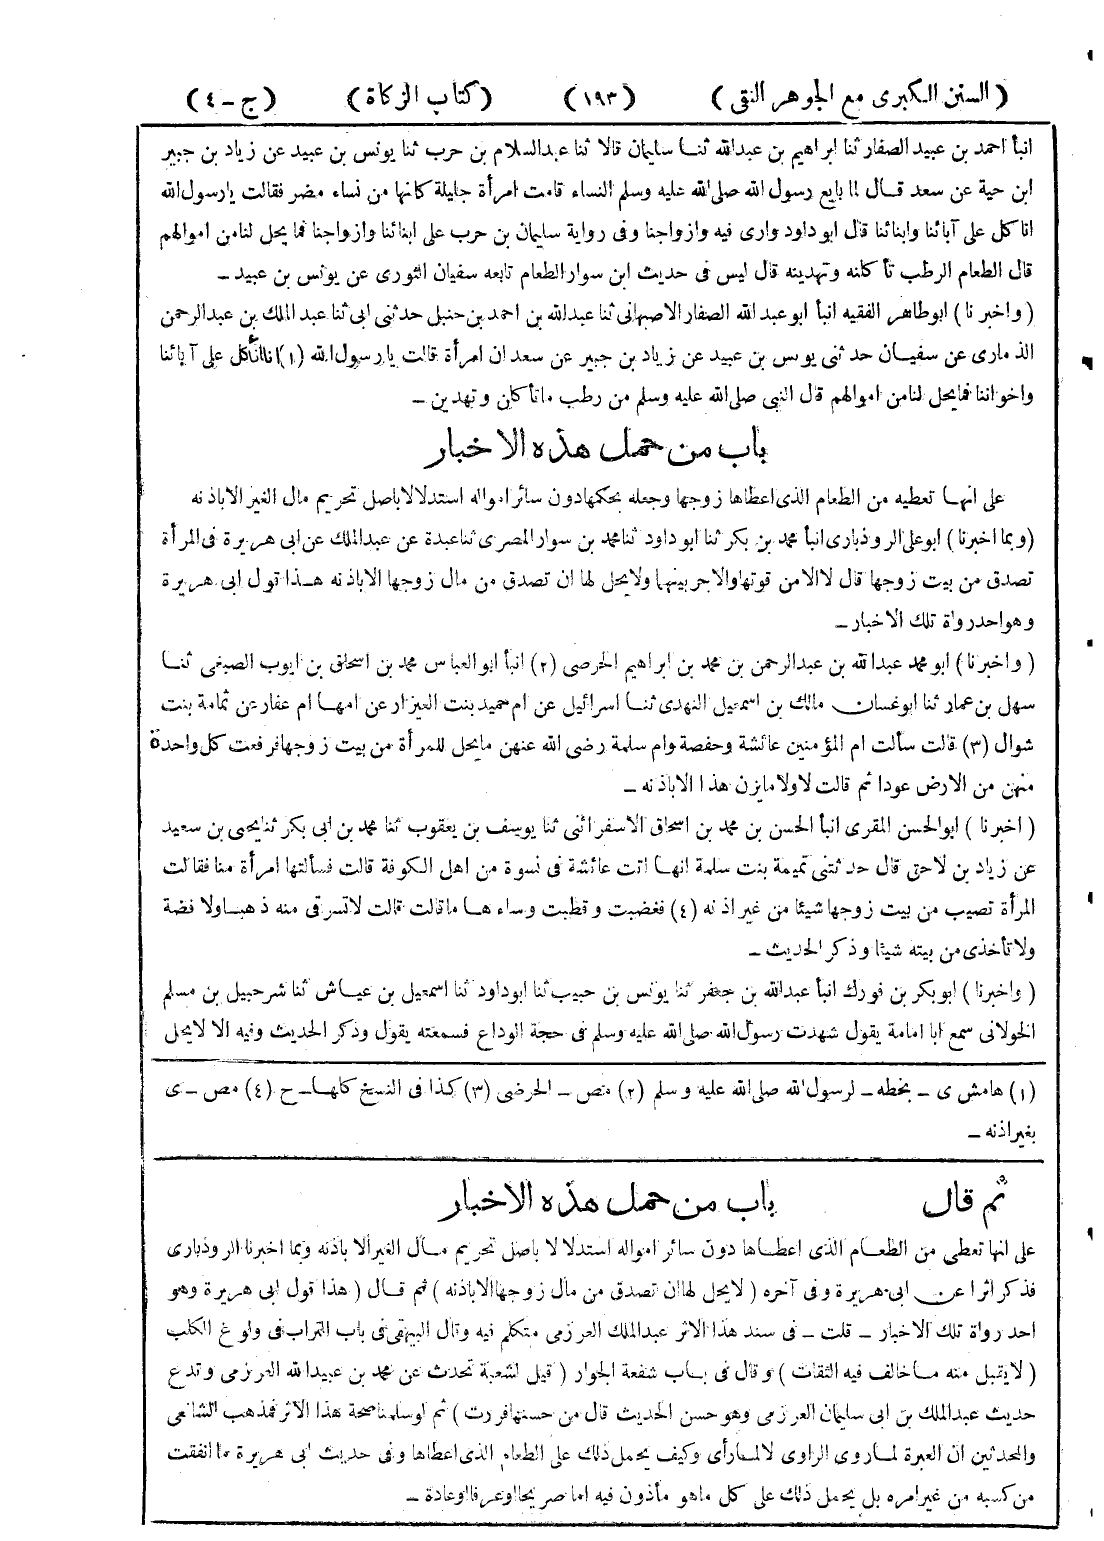 ( السنن الكبرى مع الجوهر النقى ) (١٩٣) ( كتاب الزكاة ) ( ج – ٤ )
انبأ احمد بن عبيد الصفار ثنا ابراهيم بن عبدالله ثنا سليمان قالا ثنا عبدالسلام بن حرب ثنا يونس بن عبيد عن زياد بن جبير
ابن حية عن سعد قال لما بايع رسول الله صلى الله عليه وسلم النساء قامت امرأة جليلة كانها من نساء مضر فقالت يا رسول الله
انا كل على آبائنا وابنائنا قال ابو داود وارى فيه وازواجنا وفى رواية سليمان بن حرب على ابنائنا وازواجنا فما يحل لنا من اموالهم
قال الطعام الرطب تأكلنه وتهدينه قال ليس فى حديث ابن سوار الطعام تابعه سفيان الثورى عن يونس بن عبيد –
( واخبرنا ) ابوطاهر الفقيه انبأ ابو عبد الله الصفار الاصبهانى ثنا عبدالله بن احمد بن حنبل حدثنى ابى ثنا عبد الملك بن عبدالرحمن
الذمارى عن سفيان حدثنى يونس بن عبيد عن زياد بن جبير عن سعد ان امرأة قالت يا رسول الله (١) انا نأكل على آبائنا
واخواننا فما يحل لنا من اموالهم قال النبى صلى الله عليه وسلم من رطب ما تأكلن وتهدين –
باب من حمل هذه الاخبار
على انها تعطيه من الطعام الذى اعطاها زوجها وجعله بحكمها دون سائر امواله استدلالا باصل تحريم مال الغير الا باذنه
(وبما اخبرنا ) ابو على الروذبارى انبأ محمد بن بكر ثنا ابو داود ثنا محمد بن سوار المصرى ثنا عبدة عن عبدالملك عن ابى هريرة فى المرأة
تصدق من بيت زوجها قال لا الا من قوتها والاجر بينهما ولا يحل لها ان تصدق من مال زوجها الا باذنه هذا قول ابى هريرة
وهو احد رواة تلك الاخبار –
( واخبرنا ) ابو محمد عبدالله بن عبدالرحمن بن محمد بن ابراهيم الحرصى (٢) انبأ ابو العباس محمد بن اسحاق بن ايوب الصبغى ثنا
سهل بن عمار ثنا ابوغسان مالك بن اسمعيل النهدى ثنا اسرائيل عن ام حميد بنت العيزار عن امها ام عفار عن ثمامة بنت
شوال (٣) قالت سألت ام المؤمنين عائشة وحفصة وام سلمة رضى الله عنهن ما يحل للمرأة من بيت زوجها فرفعت كل واحدة
منهن من الارض عودا ثم قالت لا ولا ما يزن هذا الا باذنه –
( اخبرنا ) ابوالحسن المقرى انبأ الحسن بن محمد بن اسحاق الاسفرائنى ثنا يوسف بن يعقوب ثنا محمد بن ابى بكر ثنا يحيى بن سعيد
عن زياد بن لاحق قال حدثتنى تميمة بنت سلمة انها اتت عائشة فى نسوة من اهل الكوفة قالت فسألتها امرأة منا فقالت
المرأة تصيب من بيت زوجها شيئا من غير اذنه (٤) فغضبت وقطبت وساءها ما قالت قالت لا تسرقى منه ذهبا ولا فضة
ولا تأخذى من بيته شيئا وذكر الحديث –
( واخبرنا ) ابوبكر بن فورك انبأ عبدالله بن جعفر ثنا يونس بن حبيب ثنا ابوداود ثنا اسمعيل بن عياش ثنا شرحبيل بن مسلم
الخولانى سمع ابا امامة يقول شهدت رسول الله صلى الله عليه وسلم فى حجة الوداع فسمعته يقول وذكر الحديث وفيه الا لا يحل
(١) هامش ى – بخطه – لرسول الله صلى الله عليه وسلم (٢) مص – الحرضى (٣) كذا فى النسخ كلها – ح (٤) مص – ى
بغير اذنه –
ثم قال باب من حمل هذه الاخبار
على انها تعطى من الطعام الذى اعطاها دون سائر امواله استدلالا باصل تحريم مال الغير الا باذنه وبما اخبرنا الروذبارى
فذكر اثرا عن ابى هريرة وفى آخره ( لا يحل لها ان تصدق من مال زوجها الا باذنه ) ثم قال ( هذا قول ابى هريرة وهو
احد رواة تلك الاخبار – قلت – فى سند هذا الاثر عبدالملك العرزمى متكلم فيه وقال البيهقى فى باب التراب فى ولوغ الكلب
( لا يقبل منه ما خالف فيه الثقات ) وقال فى باب شفعة الجوار ( قيل لشعبة تحدث عن محمد بن عبيدالله العرزمى وتدع
حديث عبدالملك بن ابى سليمان العرزمى وهو حسن الحديث قال من حسنها فررت ) ثم لو سلمنا صحة هذا الاثر فمذهب الشافعى
والمحدثين ان العبرة لما روى الراوى لا لما رأى وكيف يحمل ذلك على الطعام الذى اعطاها وفى حديث ابى هريرة ما انفقت
من كسبه من غير امره بل يحمل ذلك على كل ما هو مأذون فيه اما صريحا او عرفا او عادة –